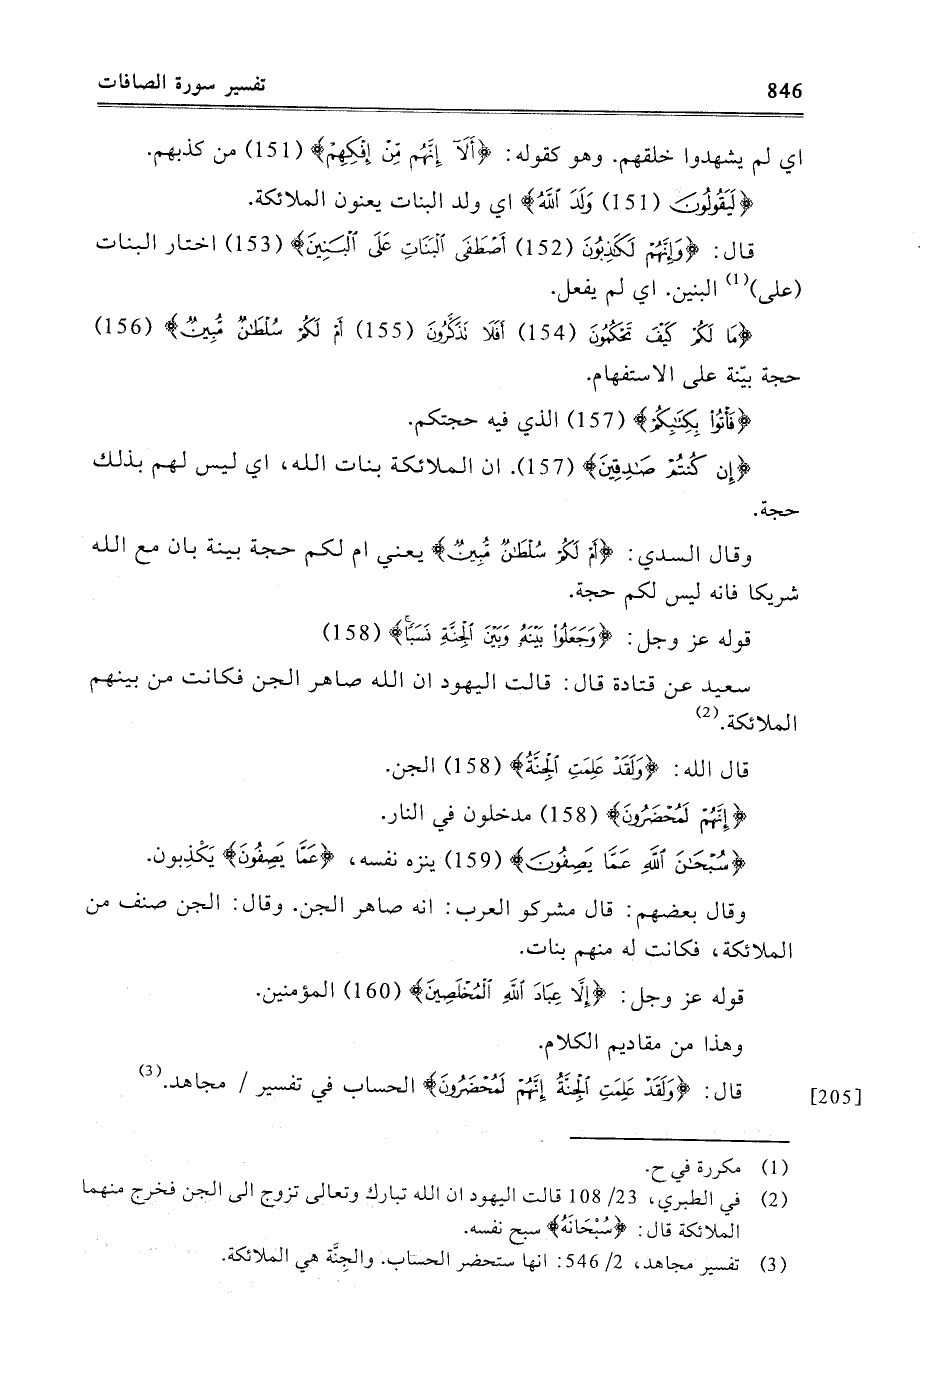 846
تفسير سورة الصافات
اي لم يشهدوا خلقهم. وهو كقوله: ﴿أَلَآ إِنَّهُم مِّنْ إِفْكِهِمْ﴾ (151) من كذبهم.
﴿لَيَقُولُونَ (151) وَلَدَ ٱللَّهُ﴾ اي ولد البنات يعنون الملائكة.
قال: ﴿وَإِنَّهُمْ لَكَٰذِبُونَ (152) أَصْطَفَى ٱلْبَنَاتِ عَلَى ٱلْبَنِينَ﴾ (153) اختار البنات
(على)(1) البنين. اي لم يفعل.
﴿مَا لَكُمْ كَيْفَ تَحْكُمُونَ (154) أَفَلَا تَذَكَّرُونَ (155) أَمْ لَكُمْ سُلْطَٰنٌ مُّبِينٌ﴾ (156)
حجة بيّنة على الاستفهام.
﴿فَأْتُوا۟ بِكِتَٰبِكُمْ﴾ (157) الذي فيه حجتكم.
﴿إِن كُنتُمْ صَٰدِقِينَ﴾ (157). ان الملائكة بنات الله، اي ليس لهم بذلك
حجة.
وقال السدي: ﴿أَمْ لَكُمْ سُلْطَٰنٌ مُّبِينٌ﴾ يعني ام لكم حجة بينة بان مع الله
شريكا فانه ليس لكم حجة.
قوله عز وجل: ﴿وَجَعَلُوا۟ بَيْنَهُۥ وَبَيْنَ ٱلْجِنَّةِ نَسَبًا﴾ (158)
سعيد عن قتادة قال: قالت اليهود ان الله صاهر الجن فكانت من بينهم
الملائكة.(2)
قال الله: ﴿وَلَقَدْ عَلِمَتِ ٱلْجِنَّةُ﴾ (158) الجن.
﴿إِنَّهُمْ لَمُحْضَرُونَ﴾ (158) مدخلون في النار.
﴿سُبْحَٰنَ ٱللَّهِ عَمَّا يَصِفُونَ﴾ (159) ينزه نفسه، ﴿عَمَّا يَصِفُونَ﴾ يَكْذِبون.
وقال بعضهم: قال مشركو العرب: انه صاهر الجن. وقال: الجن صنف من
الملائكة، فكانت له منهم بنات.
قوله عز وجل: ﴿إِلَّا عِبَادَ ٱللَّهِ ٱلْمُخْلَصِينَ﴾ (160) المؤمنين.
وهذا من مقاديم الكلام.
قال: ﴿وَلَقَدْ عَلِمَتِ ٱلْجِنَّةُ إِنَّهُمْ لَمُحْضَرُونَ﴾ الحساب في تفسير / مجاهد.(3)
[205]
(1) مكررة في ح.
(2) في الطبري، 23/ 108 قالت اليهود ان الله تبارك وتعالى تزوج الى الجن فخرج منهما
الملائكة قال: ﴿سُبْحَانَهُ﴾ سبح نفسه.
(3) تفسير مجاهد، 2/ 546: انها ستحضر الحساب. والجِنَّة هي الملائكة.